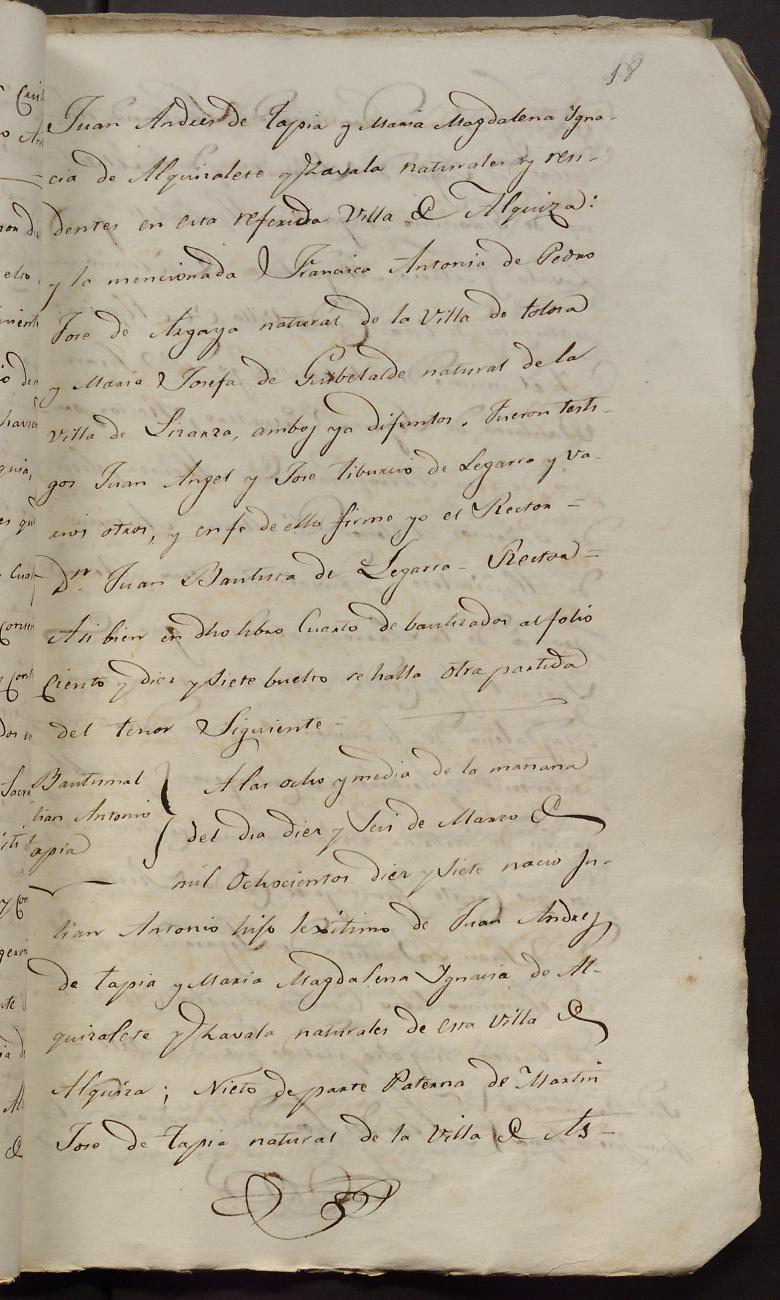 18
Juan Andres de Tapia y Maria Magdalena Igna-
cia de Alquizalete y Zavala naturales y resi-
dentes en esta referida Villa de Alquiza:
y la mencionada Francisca Antonia de Pedro
Jose de Argaya natural de la Villa de tolosa
y Maria Josefa de Guibelalde natural de la
Villa de Lizarza, ambos ya difuntos. Fueron testi-
gos Juan Angel y Jose tiburcio de Legarra y va-
rios otros, y en fe de ello firme yo el Rector =
Dn. Juan Bautista de Legarra - Rector =
Asi bien en dho libro Cuarto de bautizados al folio
Ciento y diez y siete buelto se halla otra partida
del tenor Siguiente -
Bautismal
lian Antonio
apia
A las ocho y media de la mañana
del dia diez y seis de Marzo de
mil Ochocientos diez y siete nacio Ju-
lian Antonio hijo lexitimo de Juan Andres
de Tapia y Maria Magdalena Ignacia de Al-
quizalete y Zavala naturales de esta Villa de
Alquiza; Nieto de parte Paterna de Martin
Jose de Tapia natural de la Villa de As-